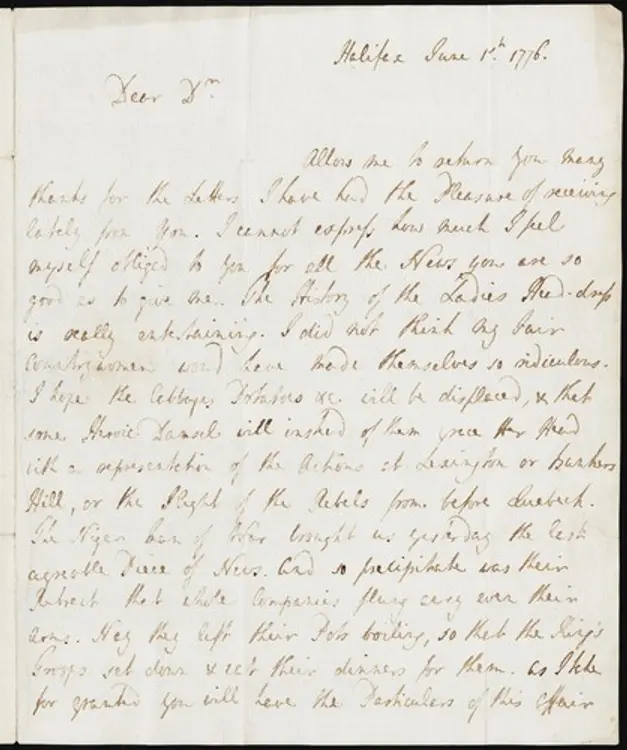 Halifax June 1st. 1776.
Dear Dr.
Allow me to return you many
thanks for the Letters I have had the Pleasure of receiving
lately from you. I cannot express how much I feel
myself obliged to you for all the News you are so
good as to give me. The History of the Ladies Head-dress
is really entertaining. I did not think my fair
Countrywomen would have made themselves so ridiculous.
I hope the Cabbages Potatoes &c. will be displaced, & that
some Heroic Damsel will instead of them grace Her Head
with a representation of the Actions at Lexington or Bunkers
Hill, or the Flight of the Rebels from before Quebeck.
The Niger Man of War brought us yesterday the last
agreable Piece of News. And so precipitate was their
Retreat that whole Companies flung away even their
Arms. Nay they left their Pots boiling, so that the King's
Troops sat down & eat their dinners for them. as I take
for granted you will have the Particulars of this affair